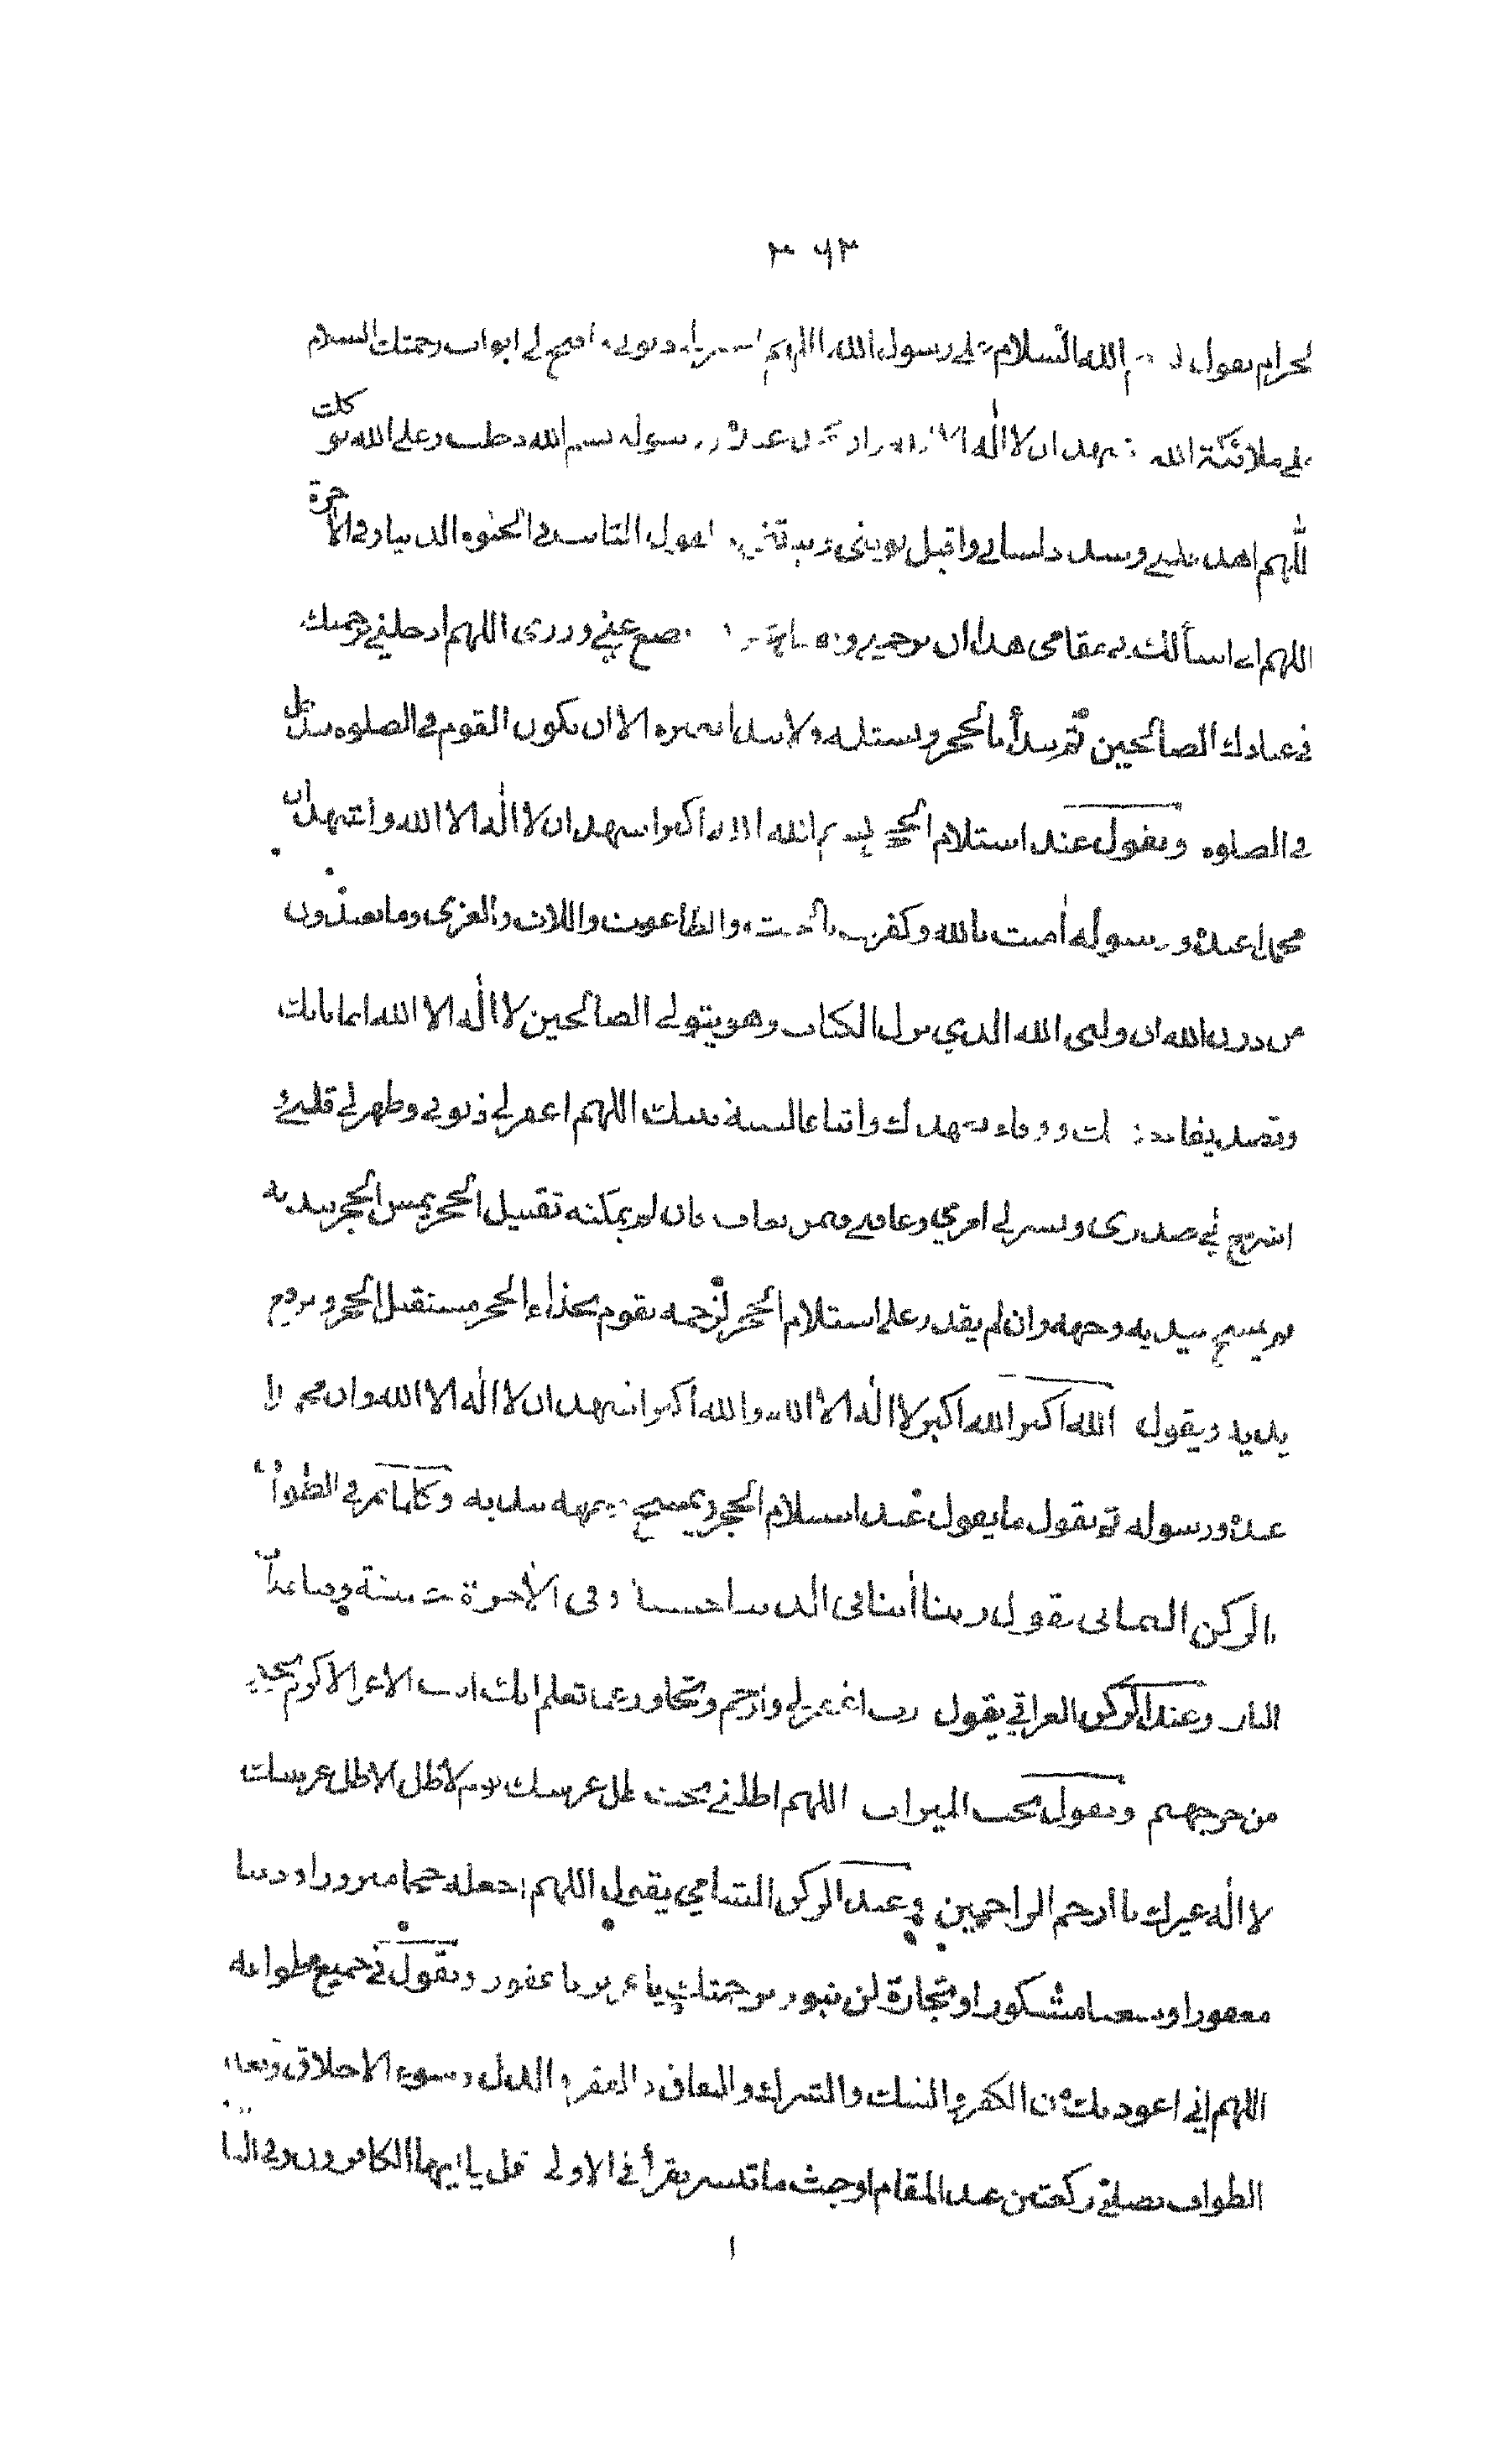 ٣٦٣
الحرام يقول بسم الله السلام على رسول الله اللهم افتح لي ابواب رحمتك السلام
على ملائكة الله اشهد ان لا اله الا عبده ورسوله بسم الله دخلت وعلى الله توكلت
اللهم اهد قلبي وسدد لساني واقبل توبتي القول الثابت في الحيوة الدنيا وفي الآخرة
اللهم اني اسألك في مقامي هذا ان ترحمني تضع عني وزري اللهم ادخلني برحمتك
في عبادك الصالحين ثم يبدأ بالحجر ويستلمه ولا يبدأ بغيره الا ان يكون القوم في الصلوة يدخل
في الصلوه ويقول عند استلام الحجر بسم الله الله اكبر اشهد ان لا اله الا الله واشهد ان
محمدا عبده ورسوله آمنت بالله وكفرت بالجبت والطاغوت واللات والعزى وما يعبدون
من دون الله ان وليي الله الذي نزل الكتاب وهو يتولى الصالحين لا اله الا الله ايمانا بك
وتصديقا ووفاء بعهدك واتباعا لسنة نبيك اللهم اغفر لي ذنوبي وطهر لي قلبي و
اشرح لي صدري ويسر لي امري وعافني فيمن تعاف فان لم يمكنه تقبيل الحجر يمس الحجر بيديه
ثم يمسح بيديه وجهه وان لم يقدر على استلام الحجر لزحمه يقوم بحذاء الحجر مستقبل الحجر ويرفع
يديه ويقول الله اكبر الله اكبر لا اله الا الله والله اكبر اشهد ان لا اله الا الله وان محمدا
عبده ورسوله ثم يقول ما يقول عند استلام الحجر ويمسح وجهه بيديه وكلما مر في الطواف
بالركن اليماني يقول ربنا آتنا في الدنيا حسنة وفي الآخرة حسنة وقنا عذاب
النار وعند الركن العراقي يقول رب اغفر لي وارحم وتجاوز عما تعلم انك انت الاعز الاكرم
من خرجهم ويقول تحت الميزاب اللهم اظلني تحت ظل عرشك يوم لا ظل الا ظل عرشك
لا اله غيرك يا ارحم الراحمين وعند الركن الشامي يقول اللهم اجعله حجا مبرورا وذنبا
مغفورا وسعيا مشكورا وتجارة لن تبور برحمتك يا عزيز يا غفور ويقول في جميع طوافه
اللهم اني اعوذ بك من الكفر والشك والشرك والنفاق والفقر والذل وسوء الاخلاق وبعد
الطواف يصلي ركعتين عند المقام او حيث ما تيسر يقرأ في الاولى قل يا ايها الكافرون وفي الثا